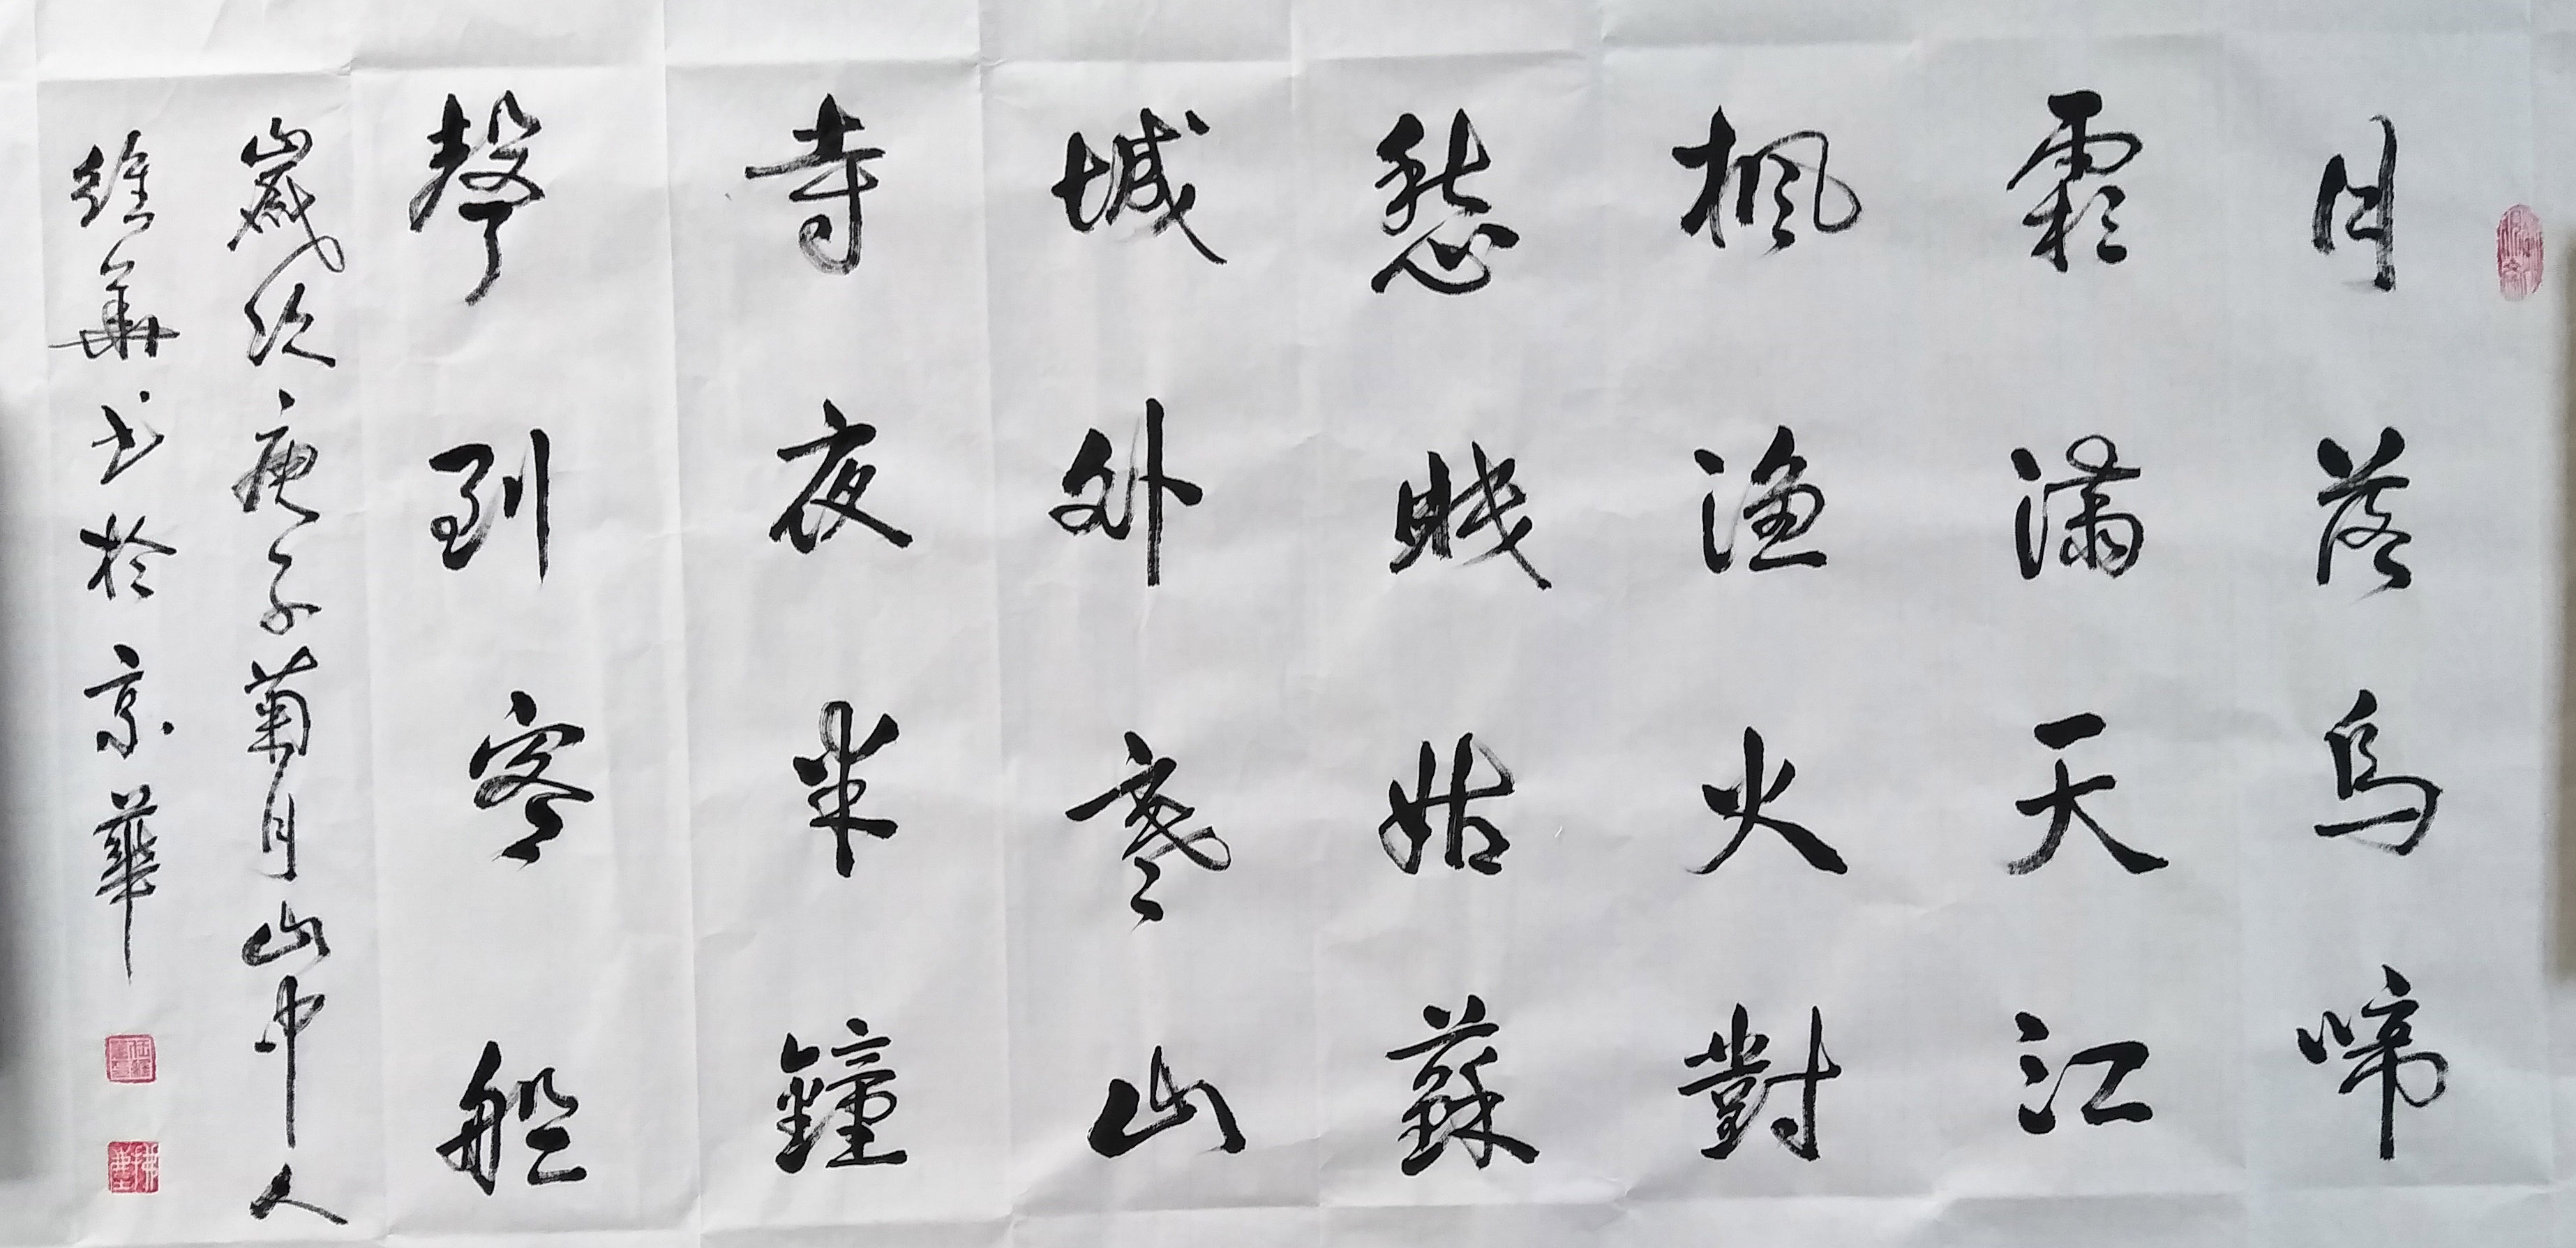 月落烏啼
霜滿天江
楓漁火對
愁眠姑蘇
城外寒山
寺夜半鐘
聲到客船
歲次庚子菊月山中人
維華书於京華